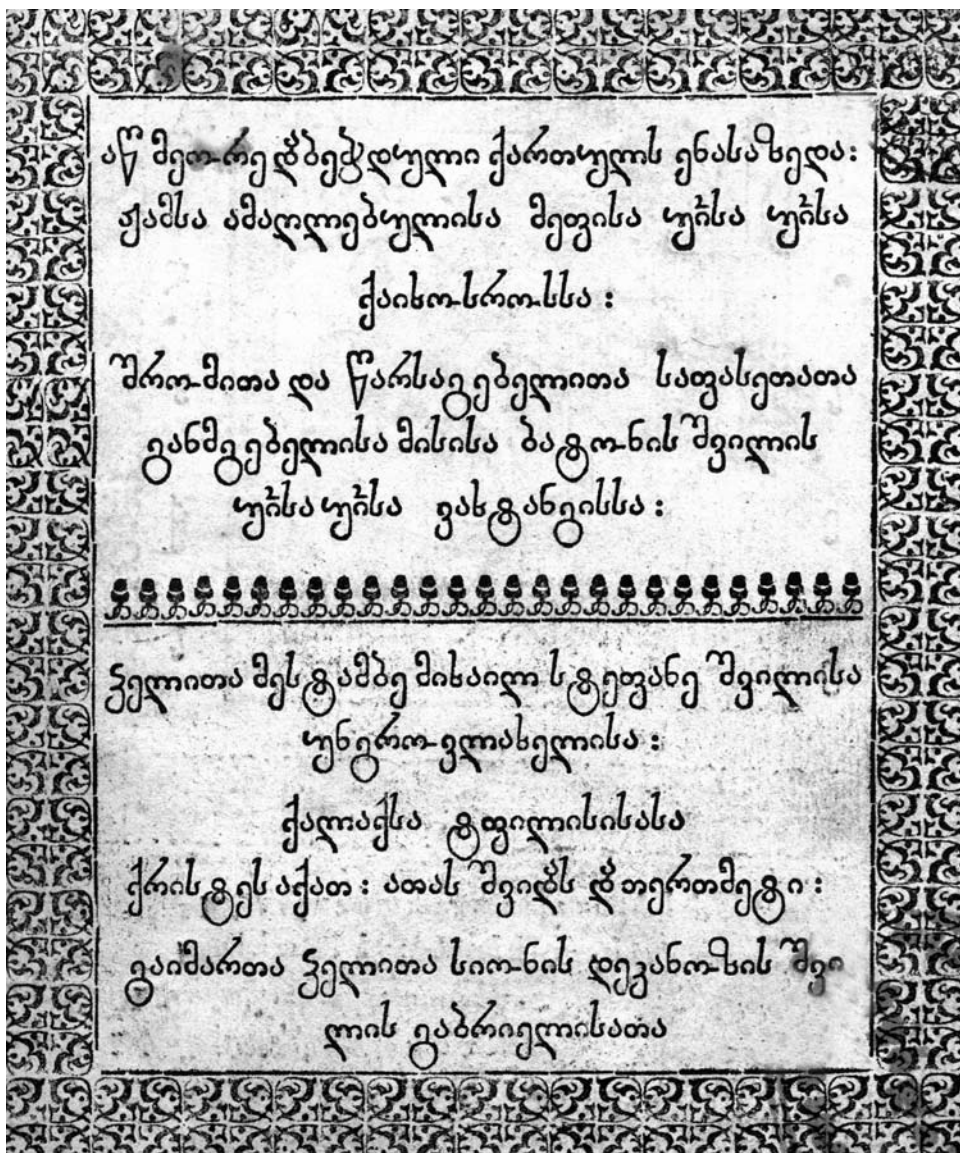 აწ მეორე დ˜ბეჭდული ქართულს ენასა ზედა:
ჟამსა ამაღლებულისა მეფისა უ˜ისა უ˜ისა
ქაიხოსროსსა :
შრომითა და წარსაგებელითა საფასეთათა
განმგებელისა მისისა ბატონის შვილის
უ˜ისა უ˜ისა ვახტანგისსა :
ჴელითა მესტამბე მიხაილ სტეფანე შვილისა
უნგროვლახელისა :
ქალაქსა ტფილისისასა
ქრისტეს აქათ : ათას შვიდ˜ს დ˜ თერთმეტი :
გაიმართა ჴელითა სიონის დეკანოზის შვი
ლის გაბრიელისათა